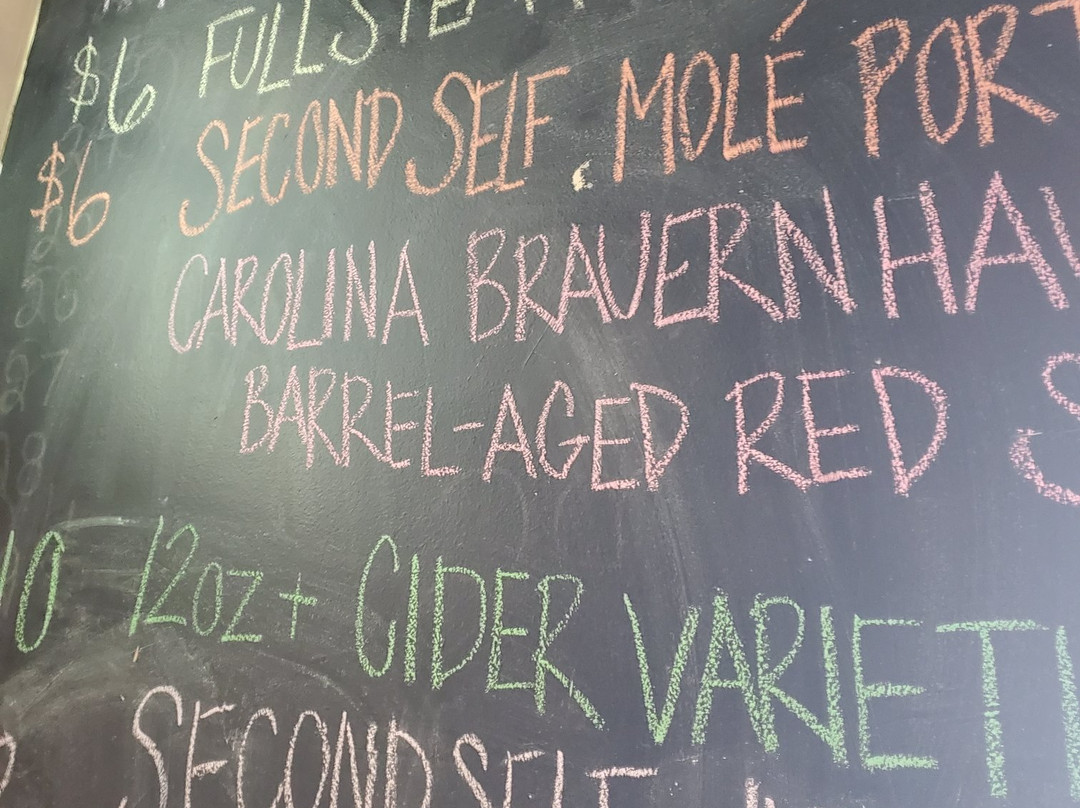 $6 FULLSTE
$6 SECOND SELF MOLÉ PORT
CAROLINA BRAUERNHAU
BARREL-AGED RED S
10 12OZ+ CIDER VARIETI
SECOND SELF